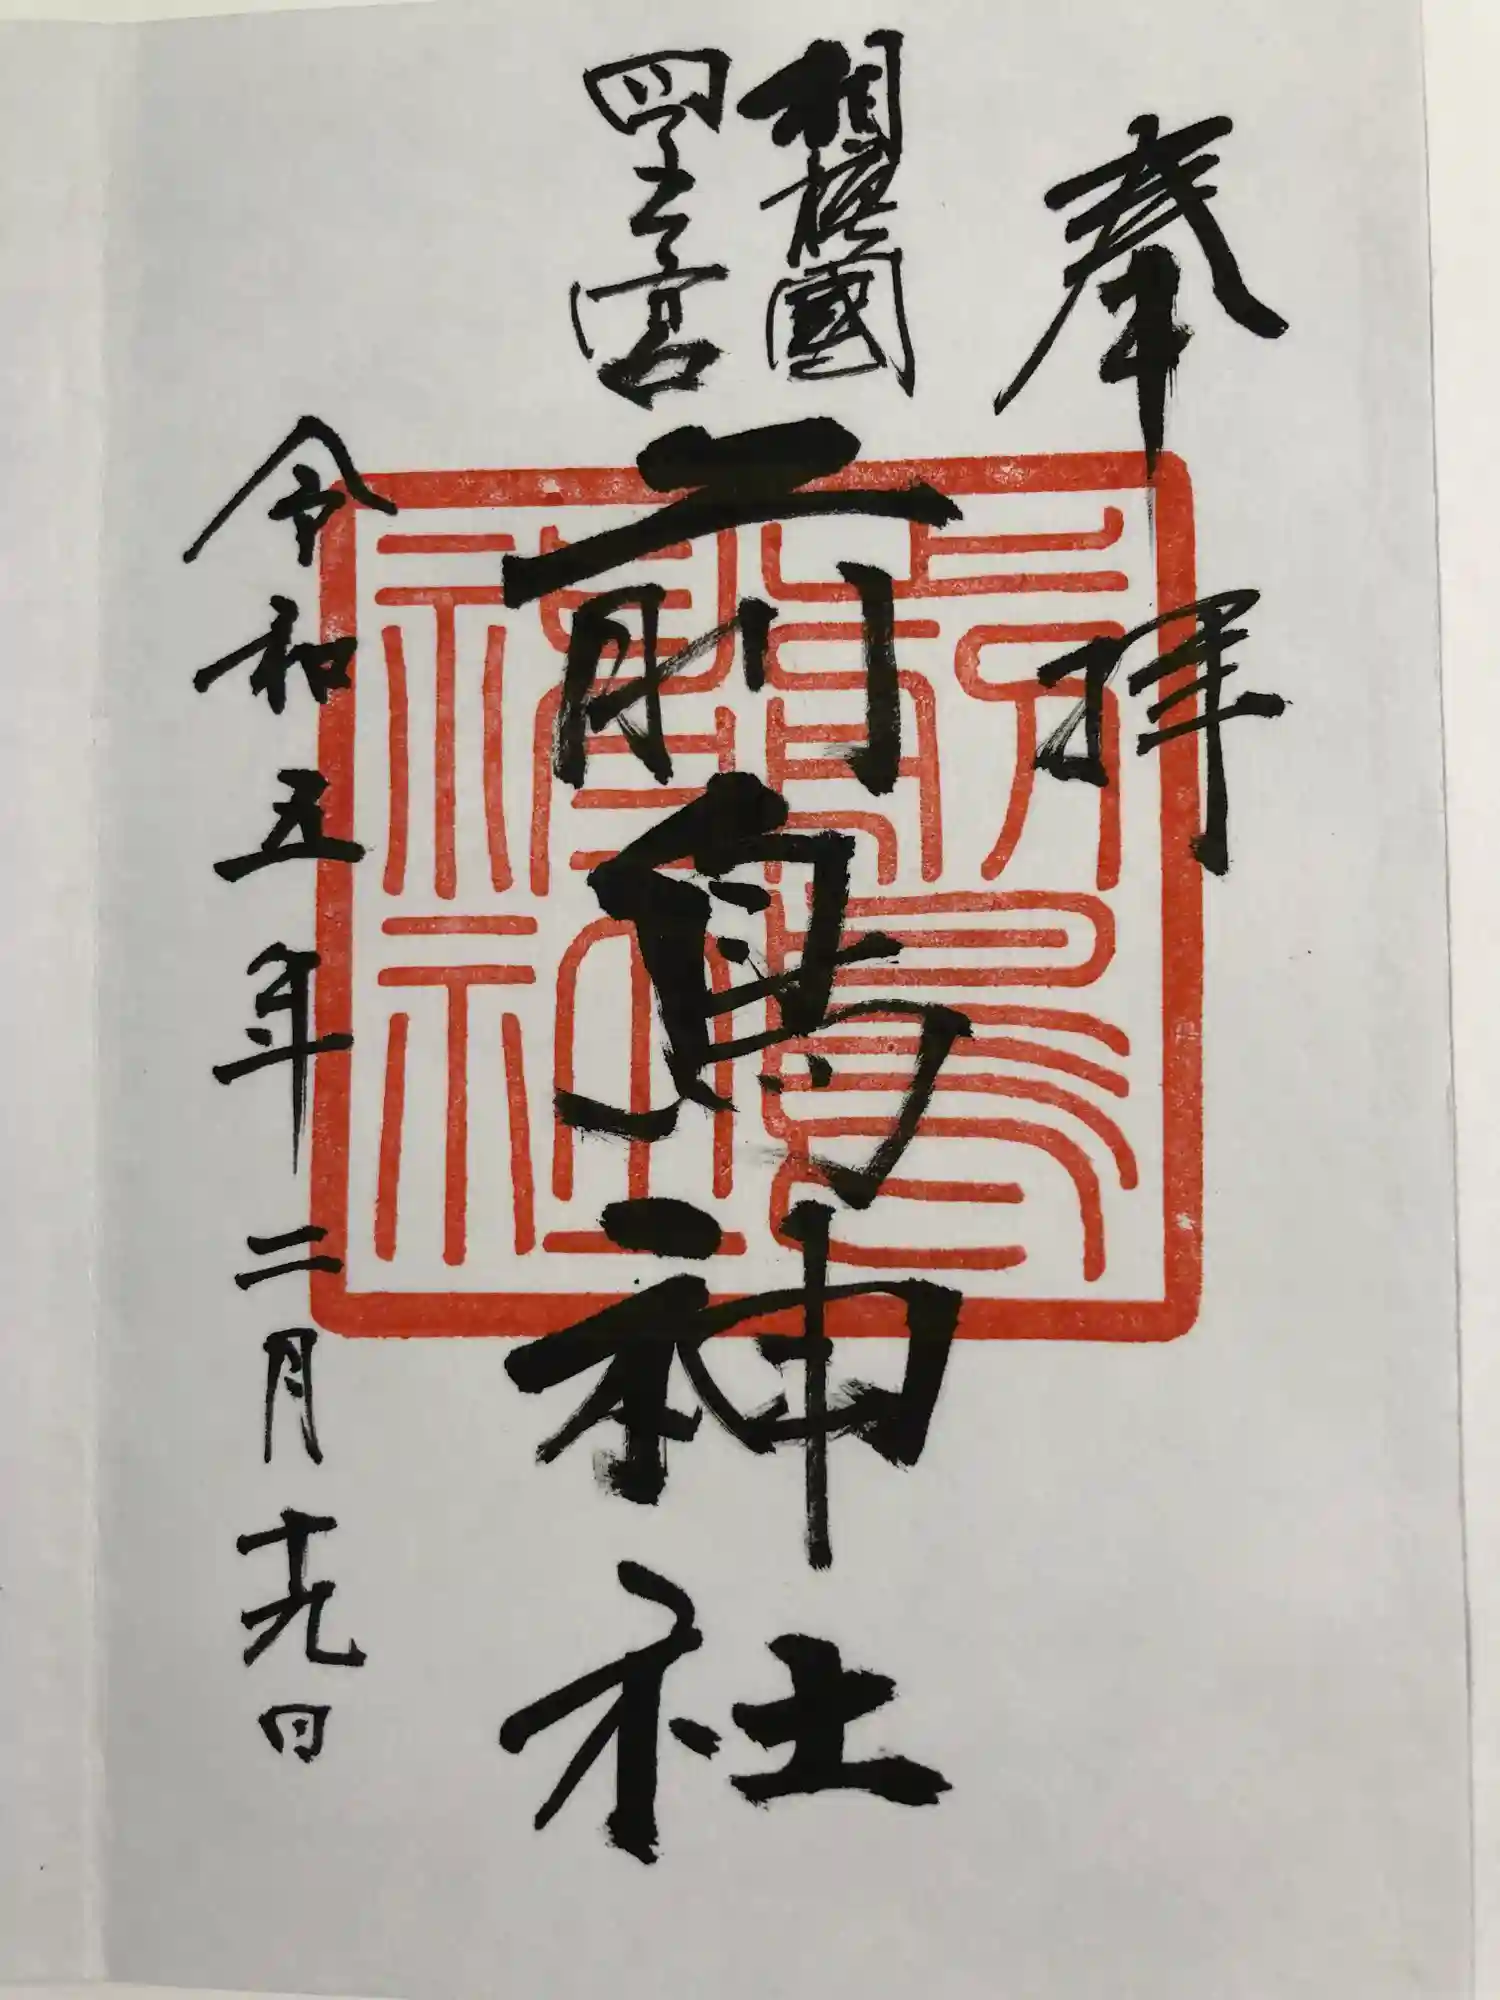 奉拝
相模國
四之宮
前鳥神社
令和五年二月十九日
前鳥神社